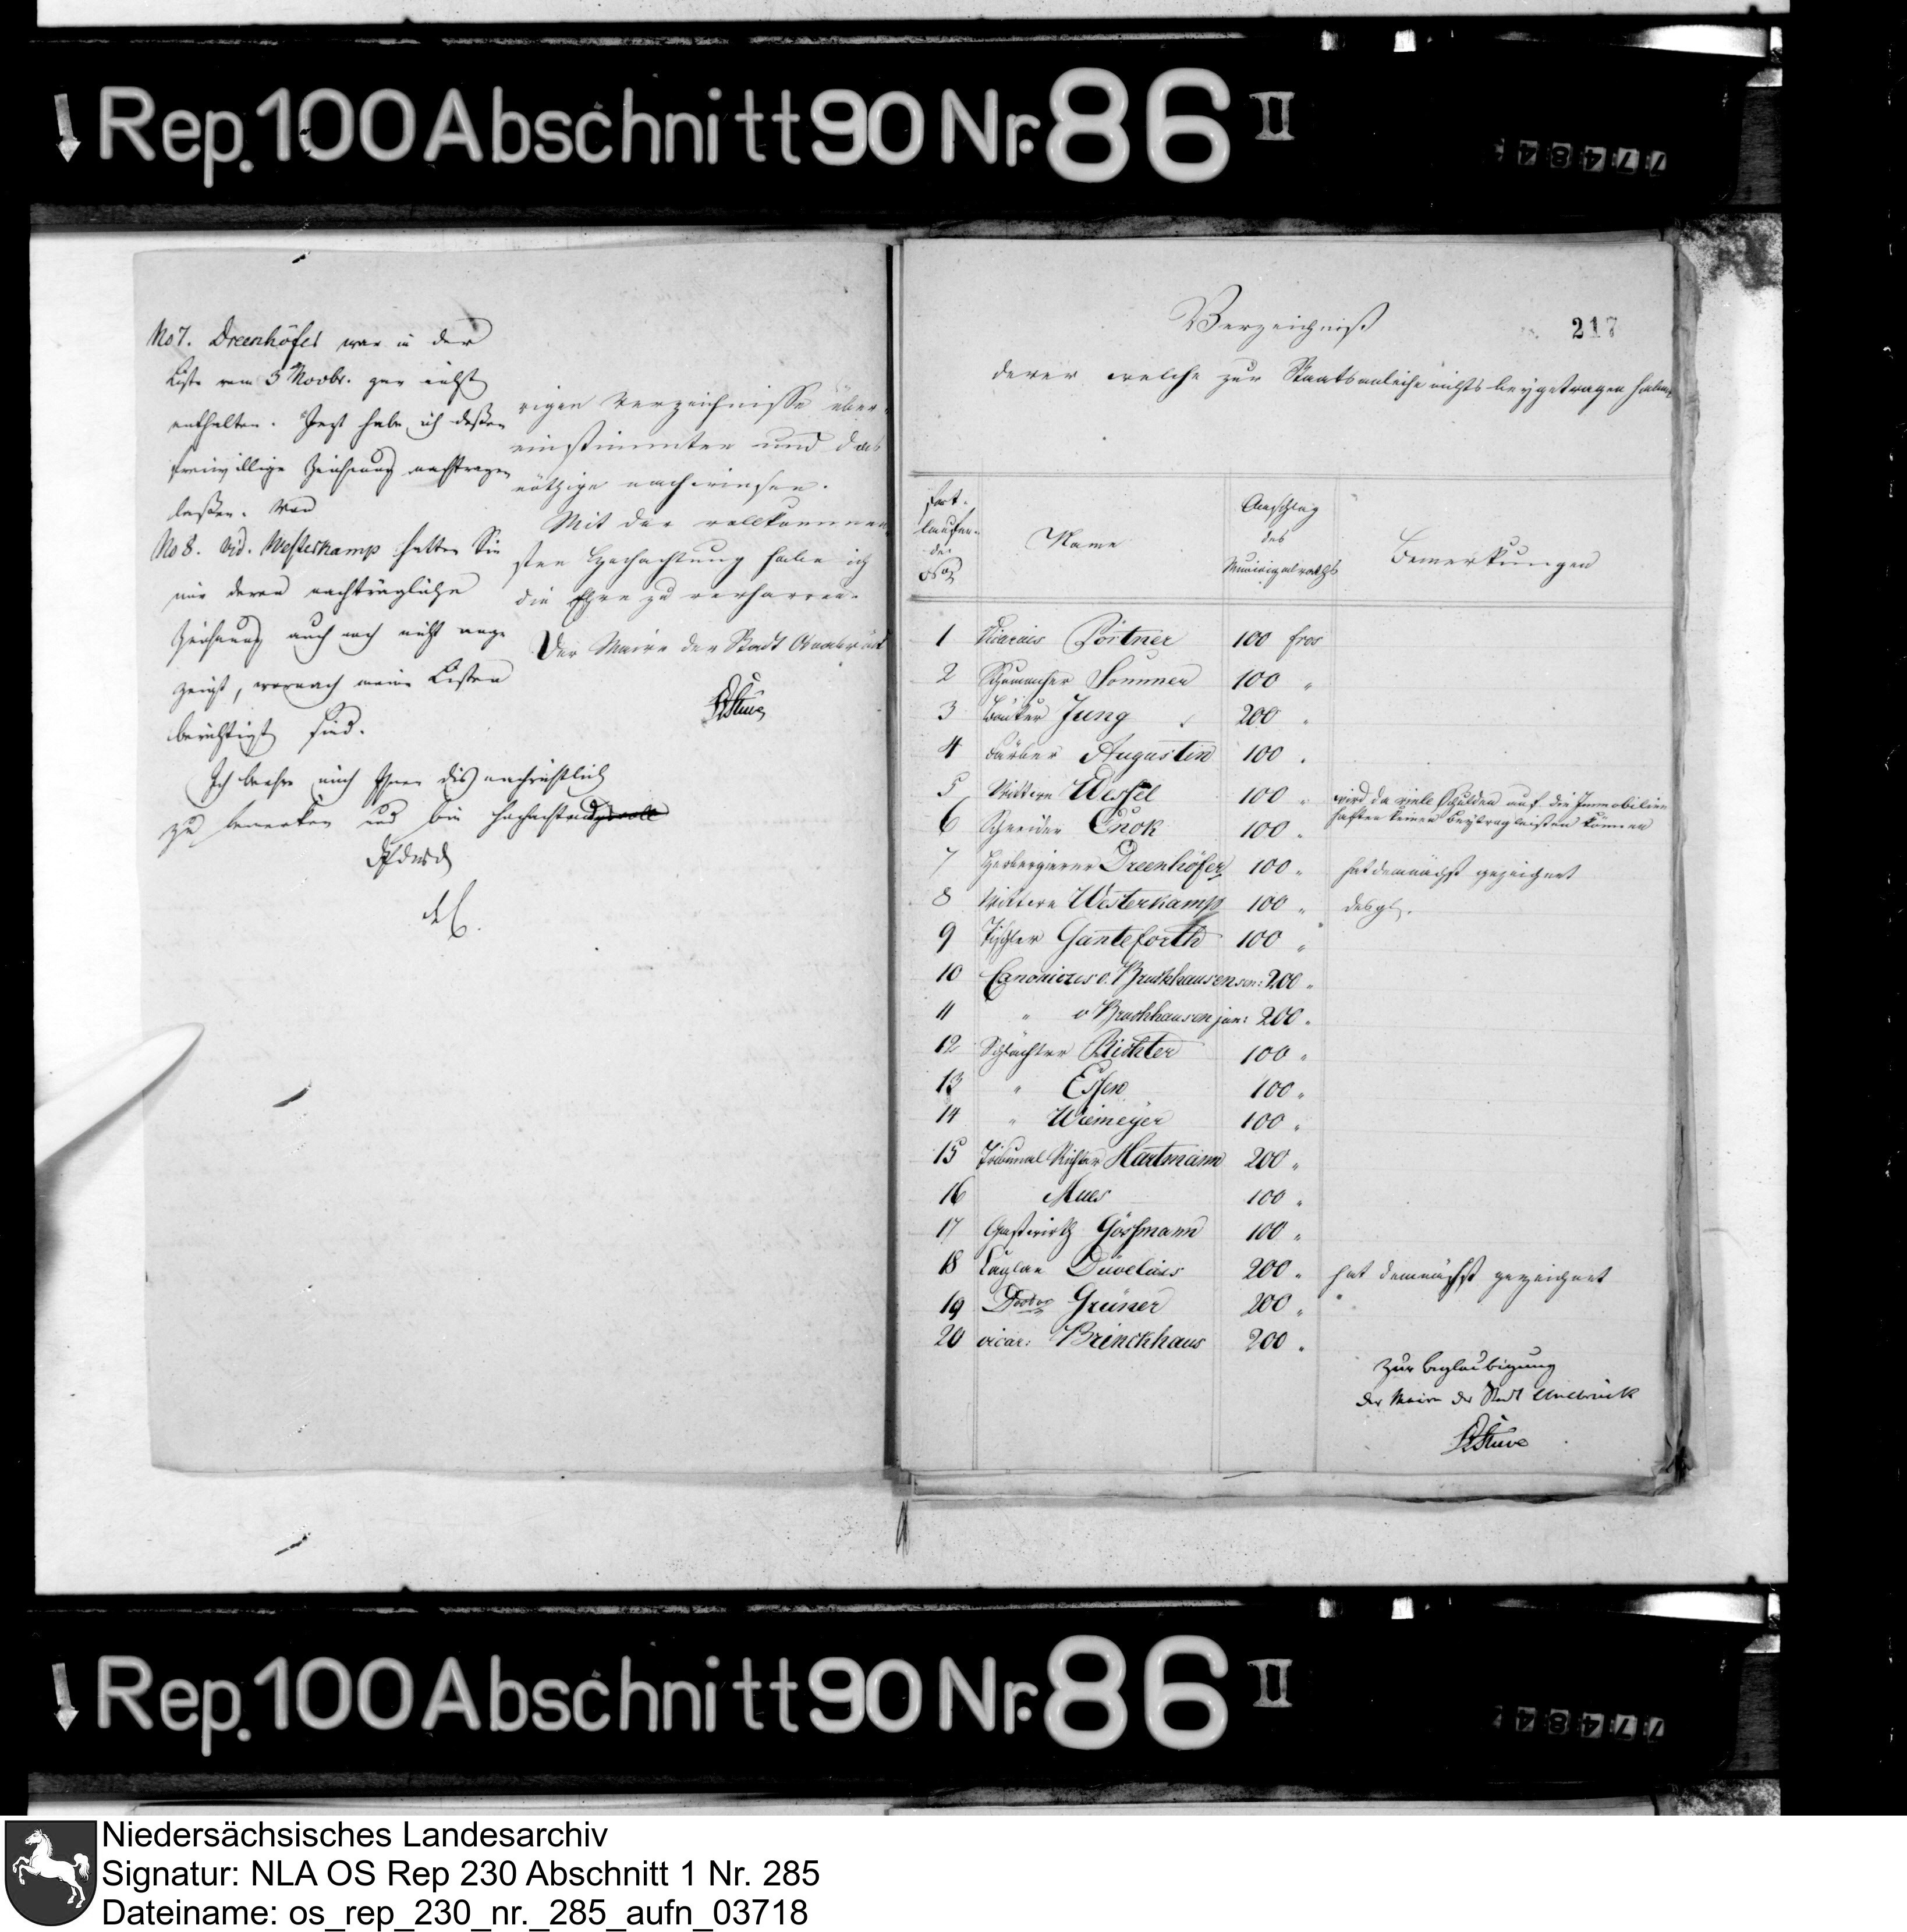 Rep. 100 Abschnitt 90 Nr. 86 II
77484
No 7. Dreenhöfer war in der
Liste vom 3 Novbr. gar nicht
enthalten. Jezt habe ich deßen
freiwillige Zeichnung nachtragen
laßen. Von
No 8. Wd. Westerkamp hatten Sie
mir deren nachträgliche
Zeichnung auch noch nicht ange
zeigt, wornach meine Listen
berichtigt sind.
Ich beehre mich Ihnen dis nachrichtlich
zu bemerken und bin hochachtungsvoll
rigen Verzeichnisse über-
einstimmten und das
nöthige nachwiesen.
Mit der vollkommen
sten Hochachtung habe ich
die Ehre zu verharren.
Der Maire der Stadt Osnabrück
Stüve
217
Verzeichniß
derer welche zur Staatsanleihe nichts beygetragen haben
Fort-
laufen-
de
No
Name
Anschlag
des
Municipalraths
Bemerkungen
1 Vicarius Pörtner 100 frcs
2 Schumacher Sommer 100 "
3 Bäcker Jung 200 "
4 Färber Augustin 100 "
5 Wittwe Wessel 100 " wird da viele Schulden auf die Immobilien
haften keinen Beytrag leisten können
6 Schneider Enok 100 "
7 Herbergierer Dreenhöfer 100 " hat demnächst gezeichnet
8 Wittwe Westerkamp 100 " desgl.
9 Tischler Ganteforth 100 "
10 Canonicus v. Bruckhausen sen: 200 "
11 " v Bruckhausen jun: 200 "
12 Schlächter Richter 100 "
13 " Essen 100 "
14 " Wiemeyer 100 "
15 Tribunal Richter Hartmann 200 "
16 Mues 100 "
17 Gastwirth Gösmann 100 "
18 Caplan Düvelius 200 " hat demnächst gezeichnet
19 Doctor Grüner 200 " "
20 vicar: Brinckhaus 200 "
Zur Beglaubigung
Der Maire der Stadt Osnabrück
Stüve
Rep. 100 Abschnitt 90 Nr. 86 II
77484
Niedersächsisches Landesarchiv
Signatur: NLA OS Rep 230 Abschnitt 1 Nr. 285
Dateiname: os_rep_230_nr._285_aufn_03718